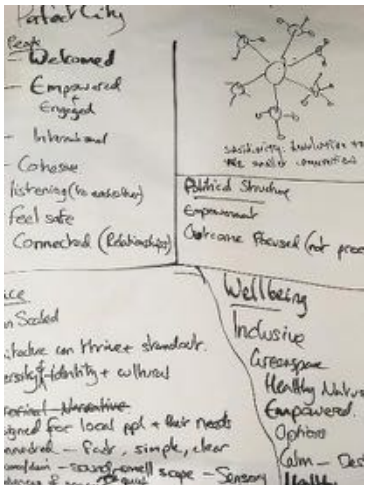 Perfect City
People
- Welcomed
- Empowered
+
Engaged
- International
- Cohesive
listening (to eachother)
feel safe
Connected (Relationships)
subsidiarity: devolution to
the smaller communities
Political Structure
Empowerment
Outcome Focused (not proc
ce
n Scaled
itecture can thrive + standout.
ersity + identity + cultures
Narrative
igned for local ppl + their needs
nnected - fast, simple, clear
- sound + smell scape - Sensory
quiet
Wellbeing
Inclusive
Greenspace
Healthy
Empowered.
Options
Calm - Des
Healthy